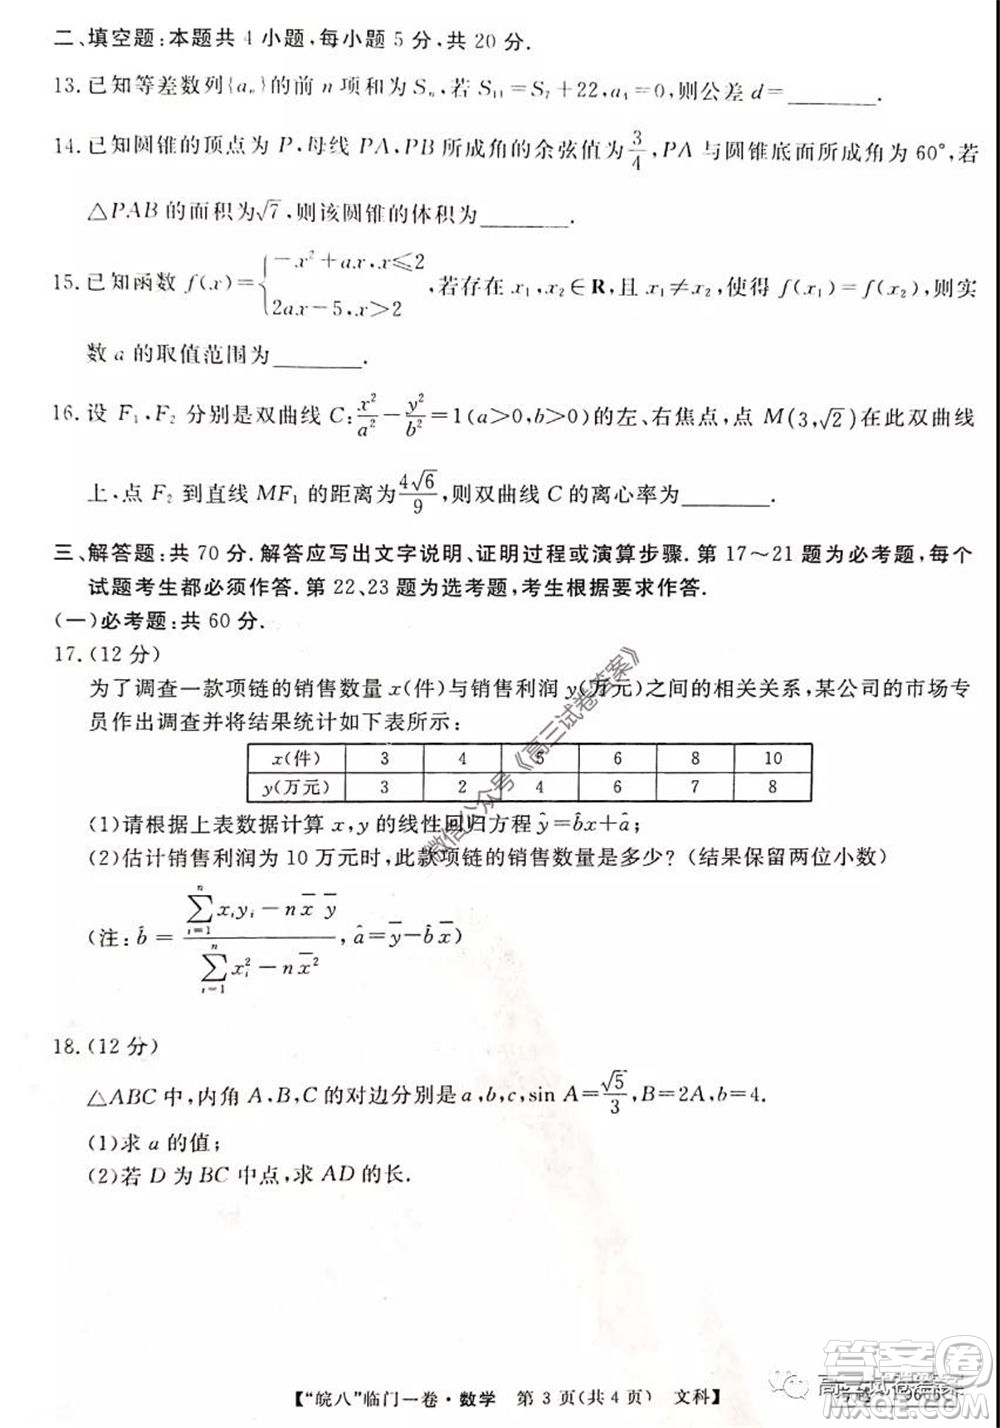 二、填空题:本题共 4 小题,每小题 5 分,共 20 分.
13.已知等差数列{aₙ}的前 n 项和为 Sₙ,若 S₁₁=S₇+22,a₁=0,则公差 d=________.
14.已知圆锥的顶点为 P,母线 PA,PB 所成角的余弦值为3/4,PA 与圆锥底面所成角为 60°,若
△PAB 的面积为√7,则该圆锥的体积为________.
15.已知函数 f(x)={−x²+ax,x≤2
2ax−5,x>2 ,若存在 x₁,x₂∈R,且 x₁≠x₂,使得 f(x₁)=f(x₂),则实
数 a 的取值范围为________.
16.设 F₁,F₂ 分别是双曲线 C:x²/a²−y²/b²=1(a>0,b>0)的左、右焦点,点 M(3,√2)在此双曲线
上,点 F₂ 到直线 MF₁ 的距离为4√6/9,则双曲线 C 的离心率为________.
三、解答题:共 70 分.解答应写出文字说明、证明过程或演算步骤.第 17~21 题为必考题,每个
试题考生都必须作答.第 22、23 题为选考题,考生根据要求作答.
(一)必考题:共 60 分.
17.(12 分)
为了调查一款项链的销售数量 x(件)与销售利润 y(万元)之间的相关关系,某公司的市场专
员作出调查并将结果统计如下表所示:
x(件) 3 4 5 6 8 10
y(万元) 3 2 4 6 7 8
(1)请根据上表数据计算 x,y 的线性回归方程 ŷ=b̂x+â;
(2)估计销售利润为 10 万元时,此款项链的销售数量是多少?(结果保留两位小数)
(注:b̂=(∑ᵢ₌₁ⁿ xᵢyᵢ−n x̄ ȳ)/(∑ᵢ₌₁ⁿ xᵢ²−n x̄²),â=ȳ−b̂ x̄)
18.(12 分)
△ABC 中,内角 A,B,C 的对边分别为 a,b,c,sin A=√5/3,B=2A,b=4.
(1)求 a 的值;
(2)若 D 为 BC 中点,求 AD 的长.
【“皖八”临门一卷·数学 第 3 页(共 4 页) 文科】
微信公众号《高三试卷答案》
答案卷